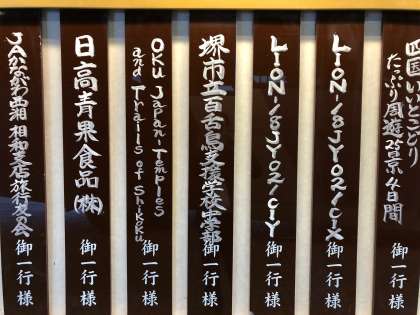 四国いいとこどり
たっぷり周遊25景4日間
LION-18JY021CIX
御一行様
LION-18JY021CIY
御一行様
堺市立百舌鳥支援学校中学部
御一行様
OKU Japan-Temples
and Trails of Shikoku
御一行様
日高青果食品(株)
御一行様
JAかながわ西湘 相和支店旅行友の会
御一行様